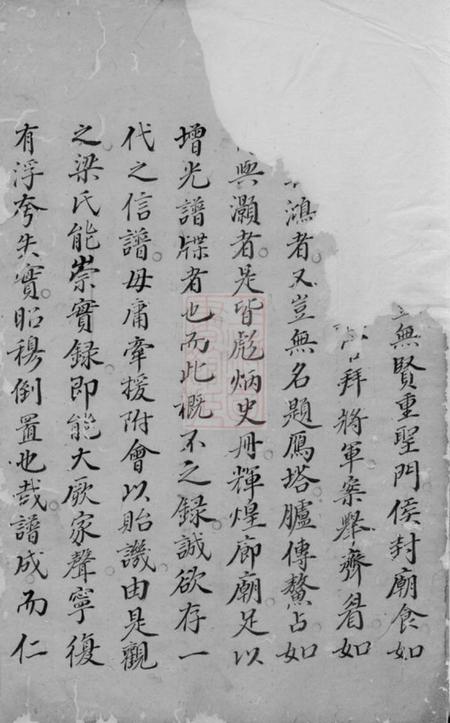 無賢重聖門侯封廟食如
拜將軍案舉齊眉如
鴻者又豈無名題鴈塔臚傳鰲占如
與灝者是皆彪炳史冊輝煌廊廟足以
增光譜牒者也而此概不之錄誠欲存一
代之信譜毋庸牽援附會以貽譏由是觀
之梁氏能崇實錄即能大厥家聲寧復
有浮夸失實昭穆倒置也哉譜成而仁